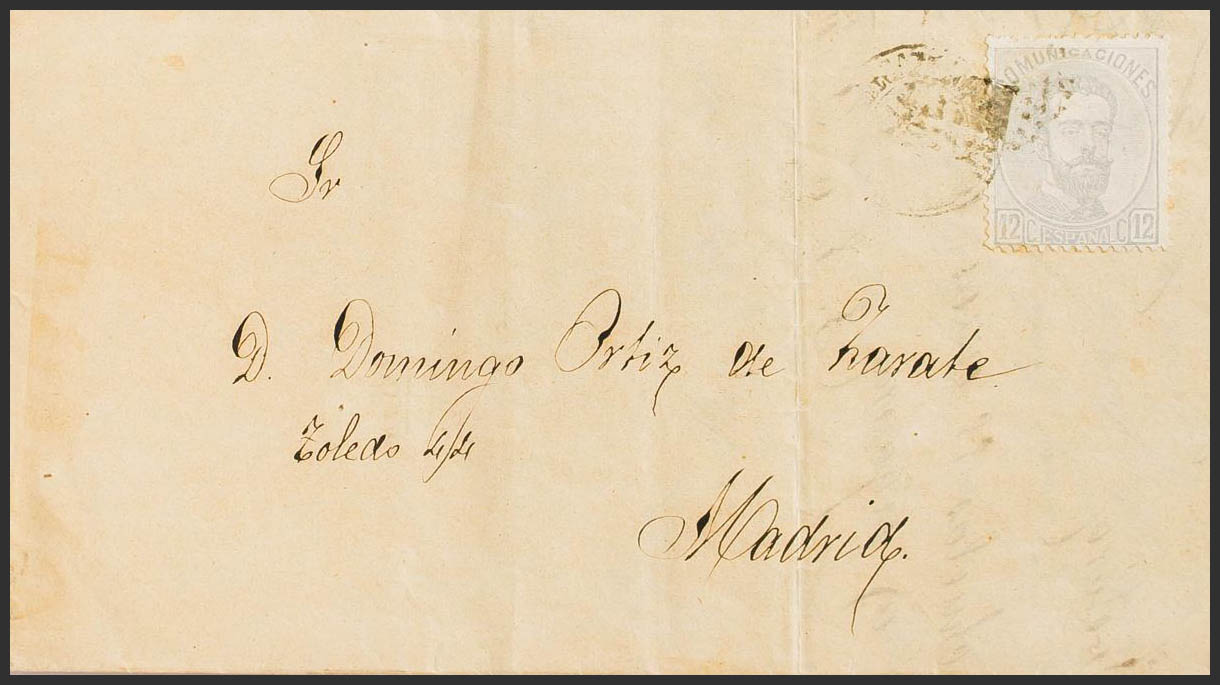 COMUNICACIONES
12 C. ESPAÑA. C 12
Sr
D. Domingo Ortiz de Zarate
Toledo 44
Madrid.